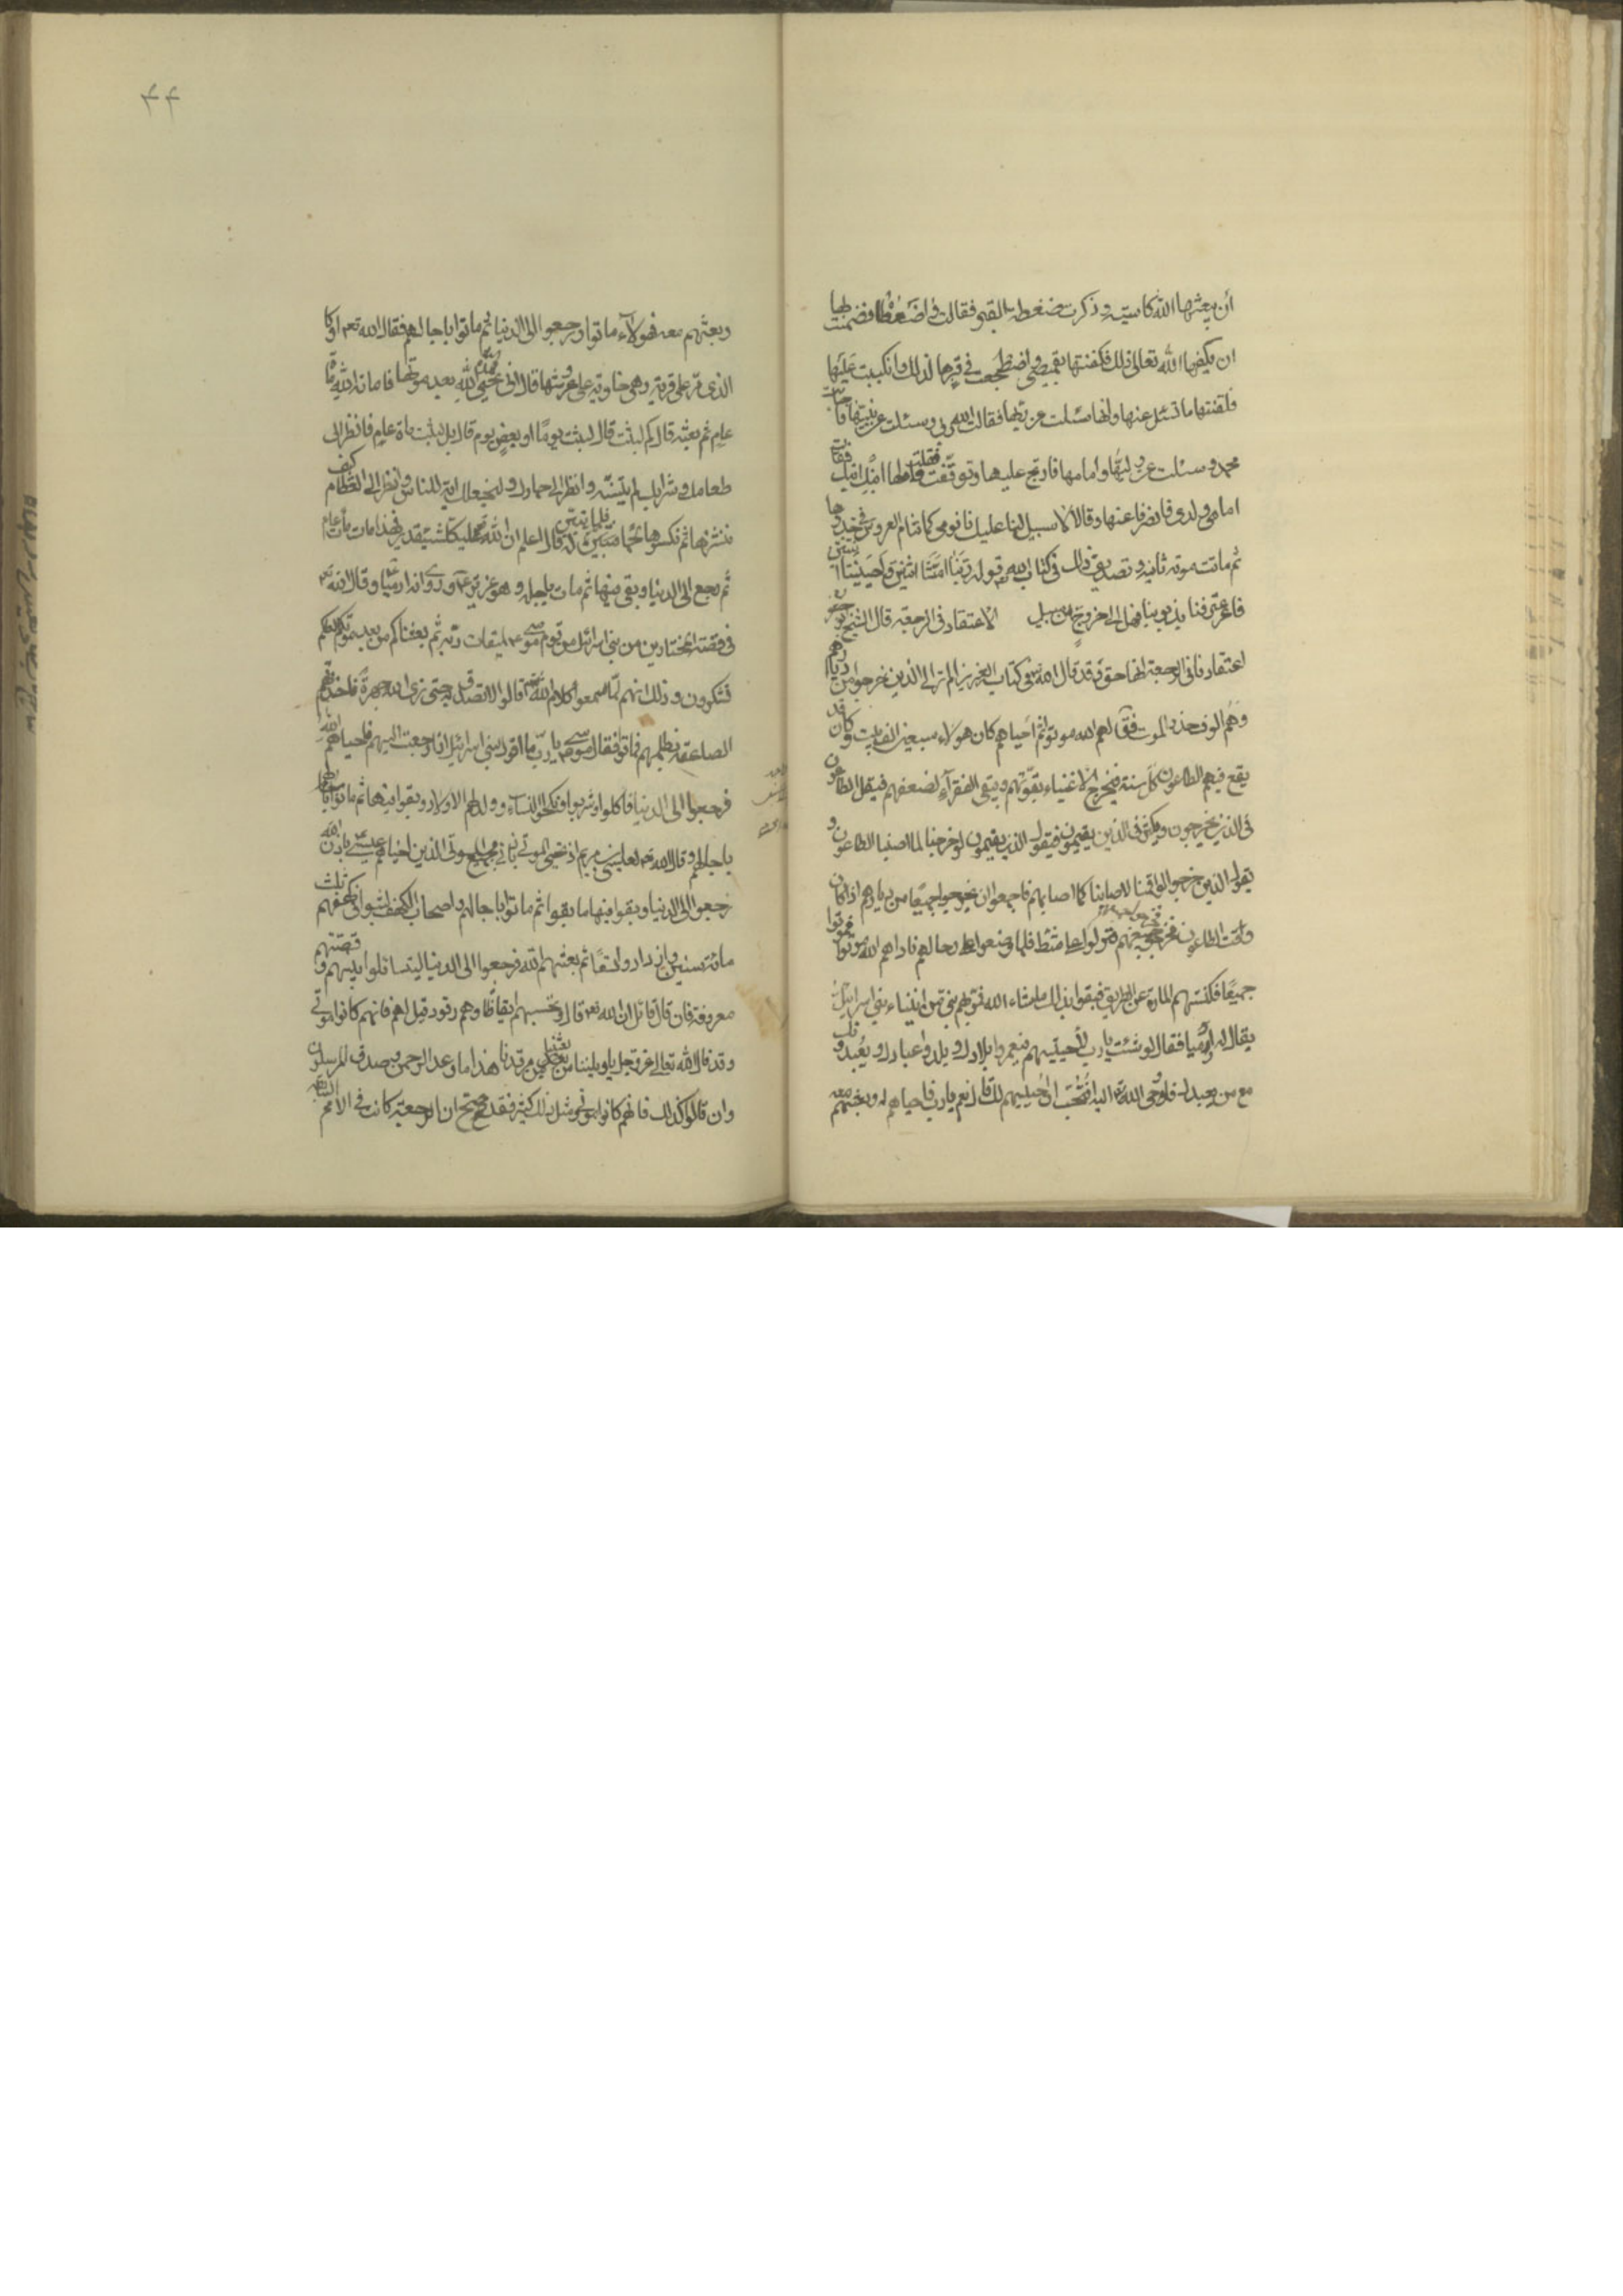 أن يبعثها الله كاسية وذكرت ضغطة القبر فقالت واضعفاه فضمنت لها
ان يكفيها الله تعالى ذلك فكفنتها بقميصي واضطجعت في قبرها لذلك وانكببت عليها
فلقنتها ما تسئل عنها وانها سئلت عن ربها فقالت الله ربي وسئلت عن نبيها فاجابت
محمد وسئلت عن وليها وامامها فارتج عليها وتوقفت فقلت لها ابنك ابنك فقالت
امامي ولدي فانصرفا عنها وقالا لا سبيل لنا عليك نامي كما تنام العروس في خدرها
ثم ماتت موتة ثانية وتصديق ذلك في كتاب الله قوله ربنا امتنا اثنتين واحييتنا اثنتين
فاعترفنا بذنوبنا فهل الى خروج من سبيل الاعتقاد في الرجعة قال الشيخ ابو جعفر
اعتقادنا في الرجعة انها حق وقد قال الله في كتابه العزيز الم تر الى الذين خرجوا من ديارهم
وهم الوف حذر الموت فقال لهم الله موتوا ثم احياهم كان هولاء سبعين الف بيت وكان قد
يقع فيهم الطاعون كل سنة فيخرج الاغنياء لقوتهم ويبقى الفقراء لضعفهم فيقل الطاعون
في الذين يخرجون ويكثر في الذين يقيمون فيقول الذين يقيمون لو خرجنا لما اصابنا الطاعون و
يقول الذين خرجوا لو اقمنا لاصابنا كما اصابهم فاجمعوا ان يخرجوا جميعا من ديارهم اذا كان
وقت الطاعون فخرجوا جميعهم فنزلوا على شط فلما وضعوا رحالهم ناداهم الله موتوا فموتوا
جميعا فكنستهم المارة عن الطريق فبقوا بذلك ما شاء الله ثم مر بهم نبي من انبياء بني اسرائيل
يقال له ارميا فقال لو شئت يا رب لاحييتهم فيعمروا بلادك ويلدوا عبادك ويعبدوك
مع من يعبدك فاوحى الله اليه افتحب ان احييهم لك قال نعم يا رب فاحياهم له وبعثهم معه
وبعثهم معه فهولاء ماتوا ورجعوا الى الدنيا ثم ماتوا باجالهم فقال الله تعه او كا
الذي مر على قرية وهي خاوية على عروشها قال انى يحيي هذه الله بعد موتها فاماته الله مائة
عام ثم بعثه قال كم لبثت قال لبثت يوما او بعض يوم قال بل لبثت مائة عام فانظر الى
طعامك وشرابك لم يتسنه وانظر الى حمارك ولنجعلك اية للناس وانظر الى العظام كيف
ننشزها ثم نكسوها لحما فلما تبين له قال اعلم ان الله على كل شيئ قدير فهذا مات مأة عام
ثم رجع الى الدنيا وبقي فيها ثم مات باجله وهو عزير وروي انه ارميا وقال الله تعه
في قصة المختارين من بني اسرائل من قوم موسى لميقات ربه ثم بعثناكم من بعد موتكم لعلكم
تشكرون وذلك انهم لما سمعوا كلام الله قالوا لا نصدق به حتى نرى الله جهرة فاخذتهم
الصاعقة بظلمهم فماتوا فقال موسى يا رب ما اقول لبني اسرائيل اذا رجعت اليهم فاحياهم الله
فرجعوا الى الدنيا فاكلوا وشربوا ونكحوا النساء وولد لهم الاولاد وبقوا فيها ثم ماتوا
باجالهم وقال الله تعه لعيسى بن مريم اذ تحيي الموتى باذني فجميع الموتى الذين احياهم عيسى باذن الله
رجعوا الى الدنيا وبقوا فيها ما بقوا ثم ماتوا باجالهم واصحاب الكهف لبثوا في كهفهم ثلث
مائة سنين وازدادوا تسعا ثم بعثهم الله فرجعوا الى الدنيا ليتسائلوا بينهم وقصتهم
معروفة فان قال قائل ان الله تعه قال وتحسبهم ايقاظا وهم رقود قيل لهم فانهم كانوا موتى
وقد قال الله تعالى عز وجل يا ويلنا من بعثنا من مرقدنا هذا ما وعد الرحمن وصدق المرسلون
وان قالوا كذلك فانهم كانوا موتى ومثل ذلك كثير فقد صح ان الرجعة كانت في الامم السالفة